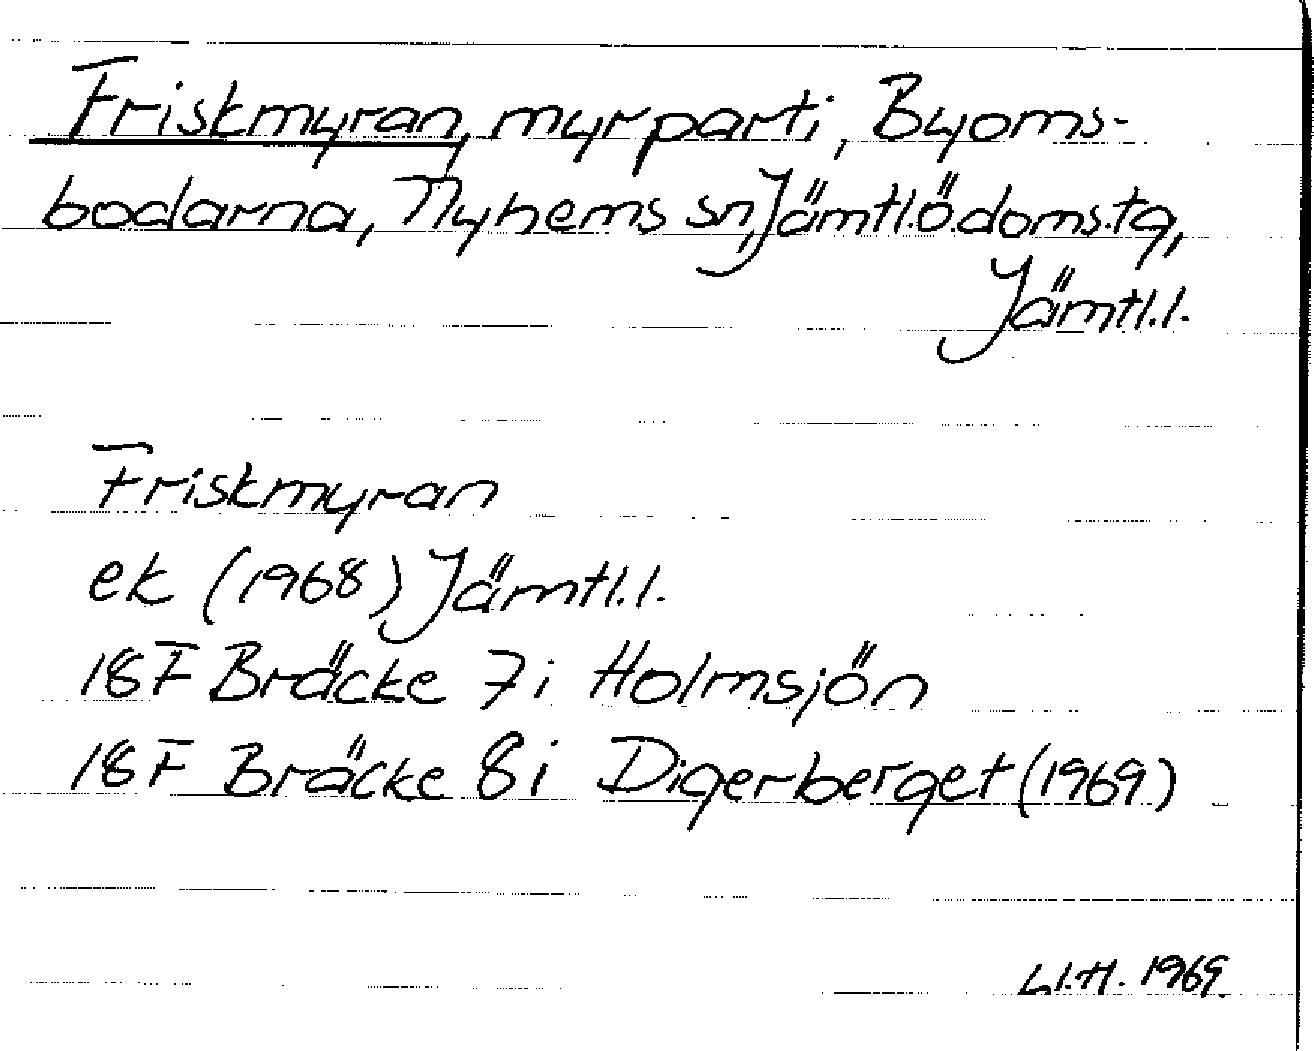 Friskmyran, myrparti, Byoms-
bodarna, Nyhems sn, Jämtl.ö.doms.tg,
Jämtl.l.
Friskmyran
ek (1968) Jämtl.l.
18F Bräcke 7i Holmsjön
18F Bräcke 8i Digerberget (1969)
1969